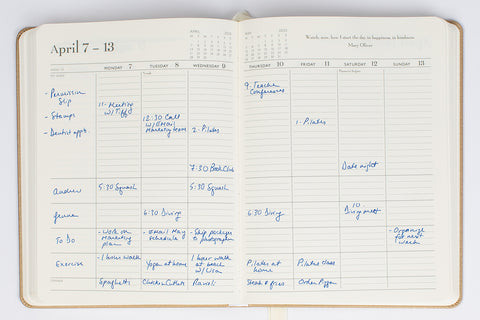 April 7 – 13
APRIL
MAY
Watch, now, how I start the day in happiness, in kindness.
Mary Oliver
MONDAY 7
TUESDAY 8
WEDNESDAY 9
THURSDAY 10
FRIDAY 11
SATURDAY 12
SUNDAY 13
- Permission
Slip
- Stamps
- Dentist appt.
11 - Meeting
w/ Tiffy
12:30 Call
w/ Email
Marketing team
2 - Pilates
7:30 Book Club
9 Teacher
Conferences
1 - Pilates
Date night
5:30 Squash
5:30 Squash
6:30 Diving
6:30 Diving
10
Diving meet
To Do
- Work on
Marketing
plan
- Email May
Schedule
- Ship packages
to photographer
- Organize
for next
week
Exercise
- 1 hour walk
Yoga at home
1 hour walk
at beach
Pilates at
home
Pilates class
Spaghetti
Chicken Cutlets
Ravioli
Steak & fries
Order Pizza